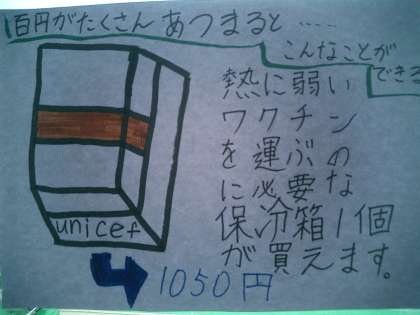 百円がたくさんあつまると……
こんなことが
できる
熱に弱い
ワクチン
を運ぶの
に必要な
保冷箱1個
が買えます。
unicef
1050円